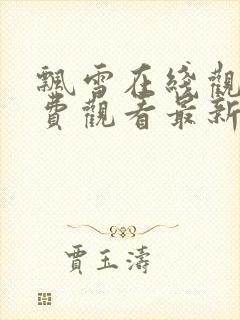 飄雪在綫觀
費觀看最新
賈玉濤